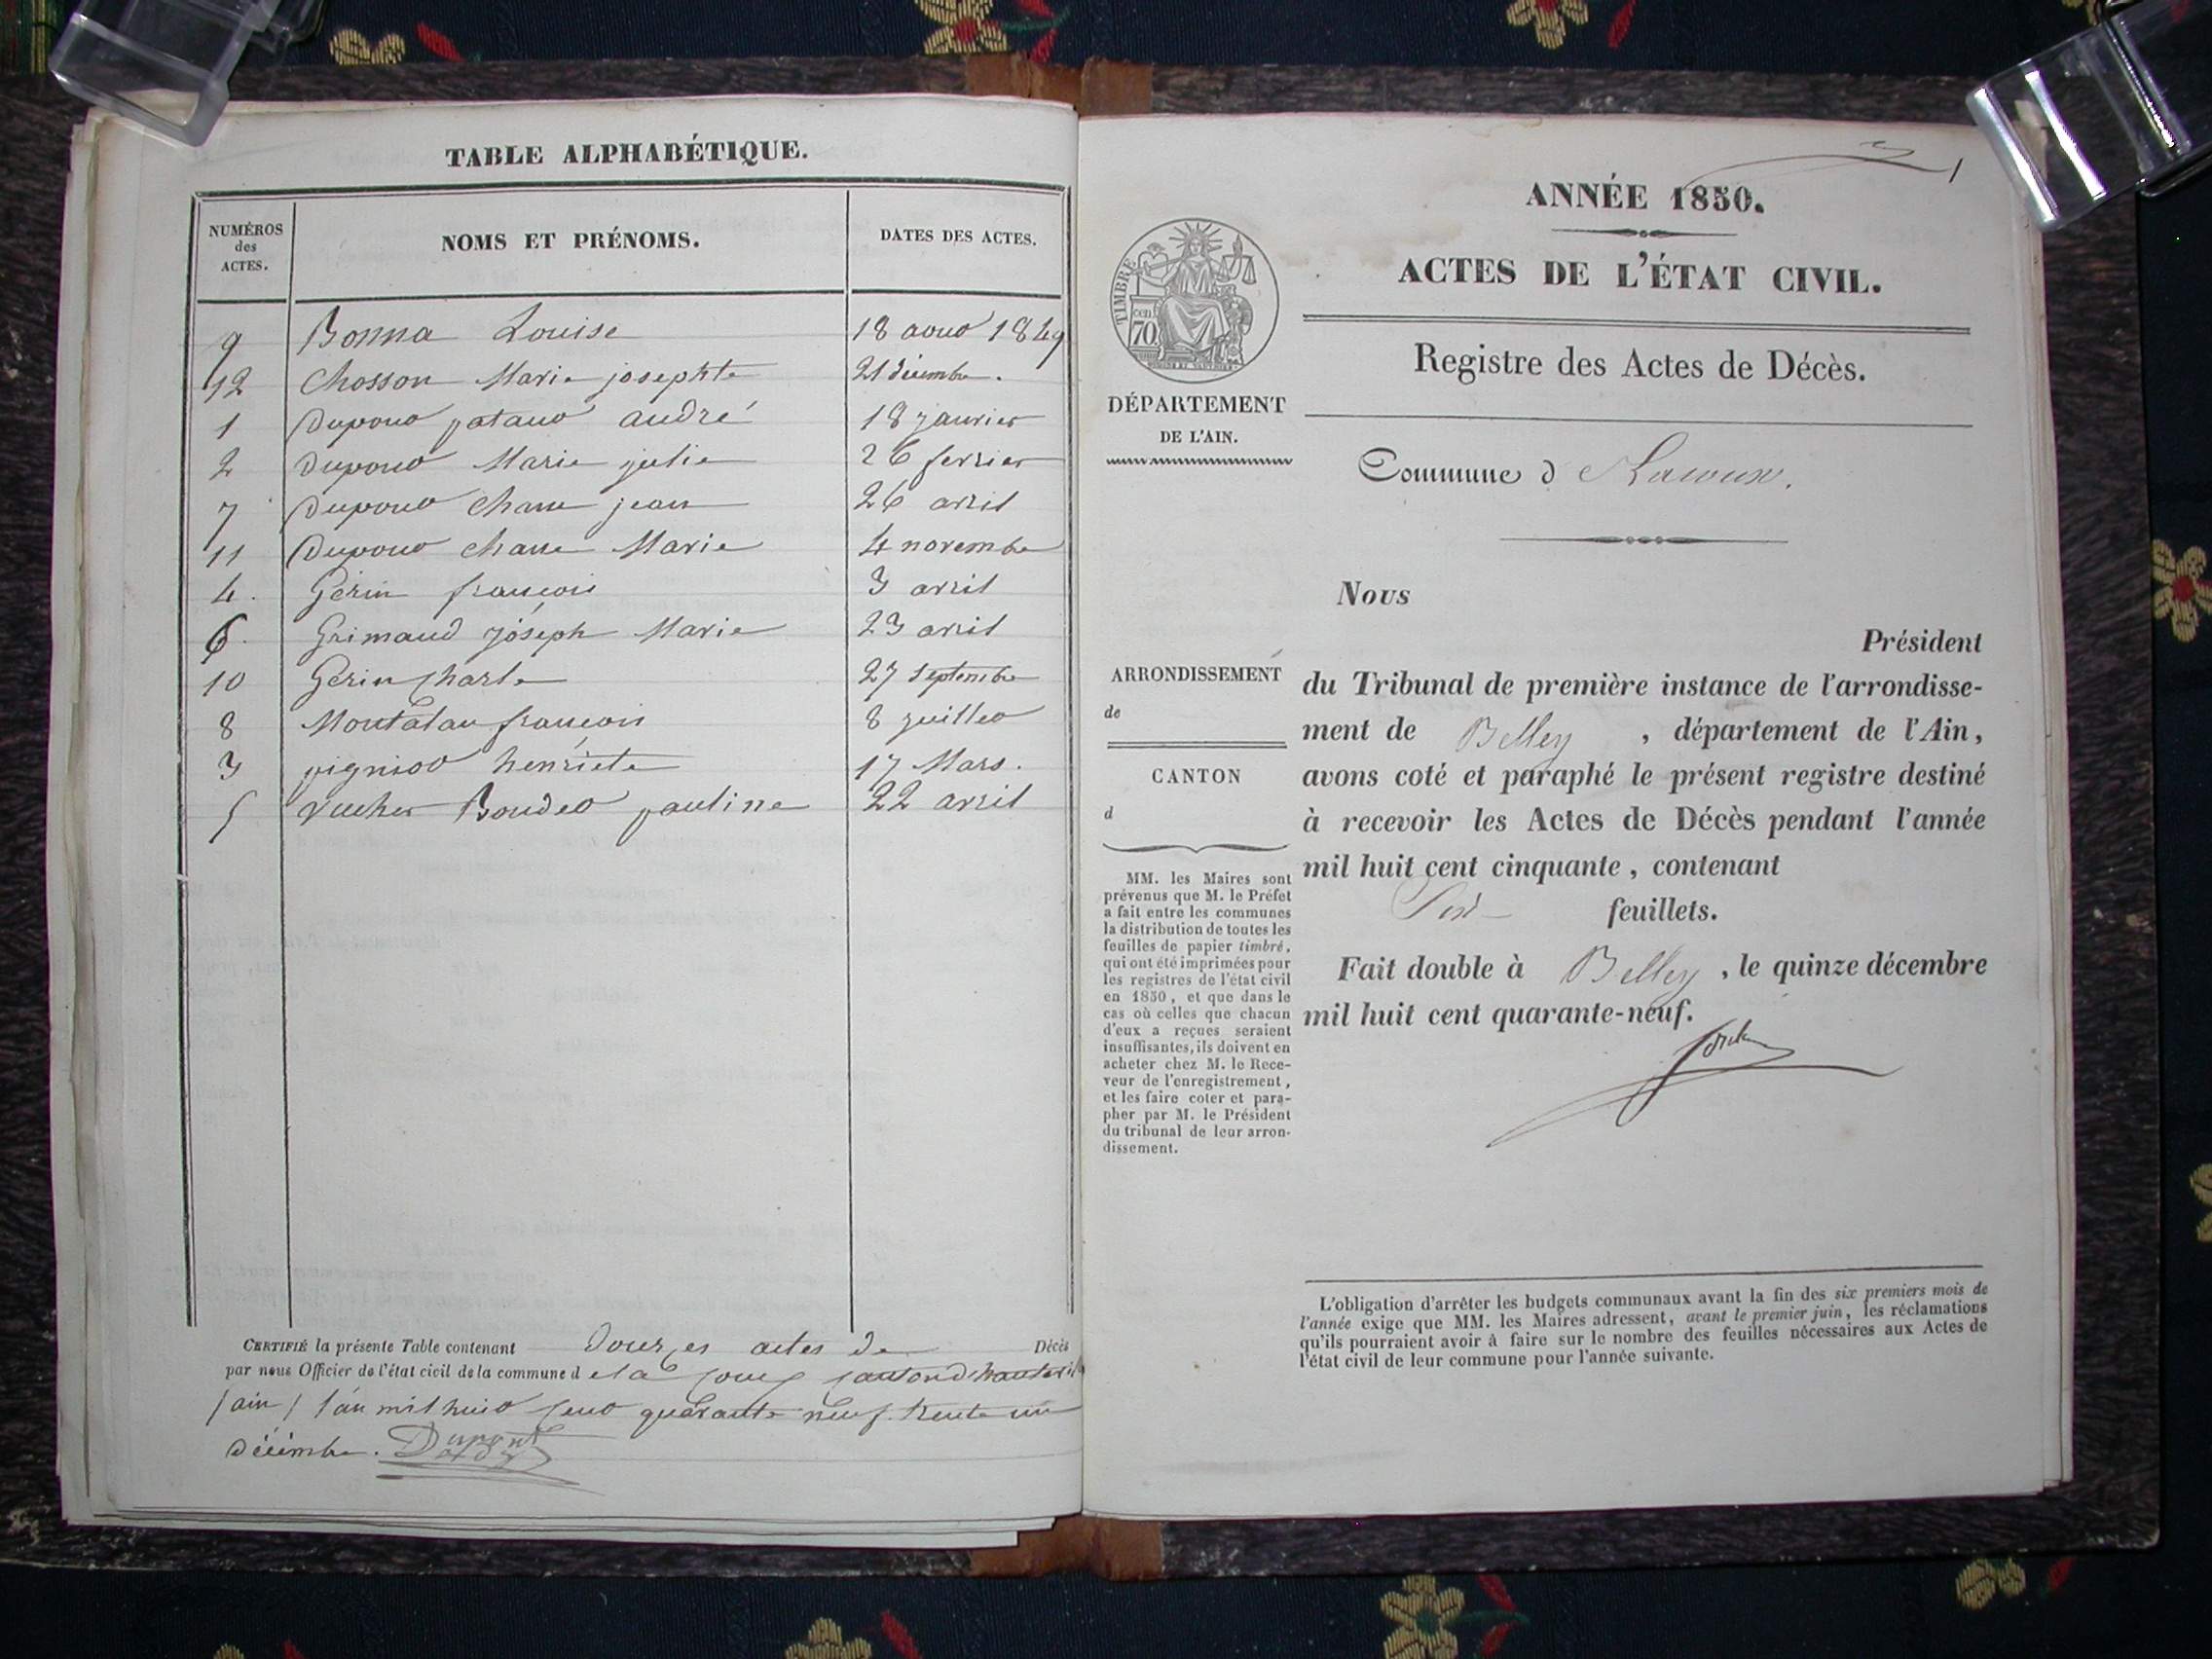 TABLE ALPHABÉTIQUE.
NUMÉROS
des
ACTES.
NOMS ET PRÉNOMS.
DATES DES ACTES.
9 Bonna Louise 18 aout 1849
12 Chosson Marie josephte 21 décembre.
1 Dupont pataud andré 18 janvier
2 Dupont Marie julie 26 fevrier
7 Dupont jean 26 avril
11 Dupont Marie 4 novembre
4. Gérin françois 3 avril
6. Grimaud joseph Marie 23 avril
10 Gérin Charle 27 septembre
8 françois 8 juillet
3 henriete 17 Mars.
5 pauline 22 avril
CERTIFIÉ la présente Table contenant actes de Décès
par nous Officier de l'état civil de la commune d
/ ain / l'an mil huit cent quarante neuf trente un
décembre. Dupont
1
ANNÉE 1850.
ACTES DE L'ÉTAT CIVIL.
Registre des Actes de Décès.
TIMBRE
cen.
70
DÉPARTEMENT
DE L'AIN.
Commune d Lacoux.
ARRONDISSEMENT
de
CANTON
d
MM. les Maires sont
prévenus que M. le Préfet
a fait entre les communes
la distribution de toutes les
feuilles de papier timbré,
qui ont été imprimées pour
les registres de l'état civil
en 1850, et que dans le
cas où celles que chacun
d'eux a reçues seraient
insuffisantes, ils doivent en
acheter chez M. le Rece-
veur de l'enregistrement,
et les faire coter et para-
pher par M. le Président
du tribunal de leur arron-
dissement.
Nous
Président
du Tribunal de première instance de l'arrondisse-
ment de Belley , département de l'Ain,
avons coté et paraphé le présent registre destiné
à recevoir les Actes de Décès pendant l'année
mil huit cent cinquante, contenant
Six feuillets.
Fait double à Belley , le quinze décembre
mil huit cent quarante-neuf.
L'obligation d'arrêter les budgets communaux avant la fin des six premiers mois de
l'année exige que MM. les Maires adressent, avant le premier juin, les réclamations
qu'ils pourraient avoir à faire sur le nombre des feuilles nécessaires aux Actes de
l'état civil de leur commune pour l'année suivante.